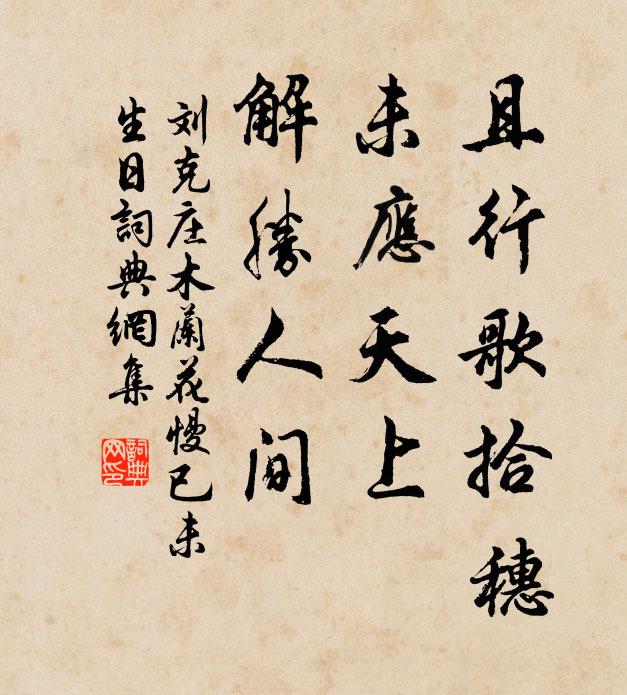 且行歌拾穗
未應天上
解勝人间
刘克庄木蘭花慢已未
生日詞典網集
詞典网印